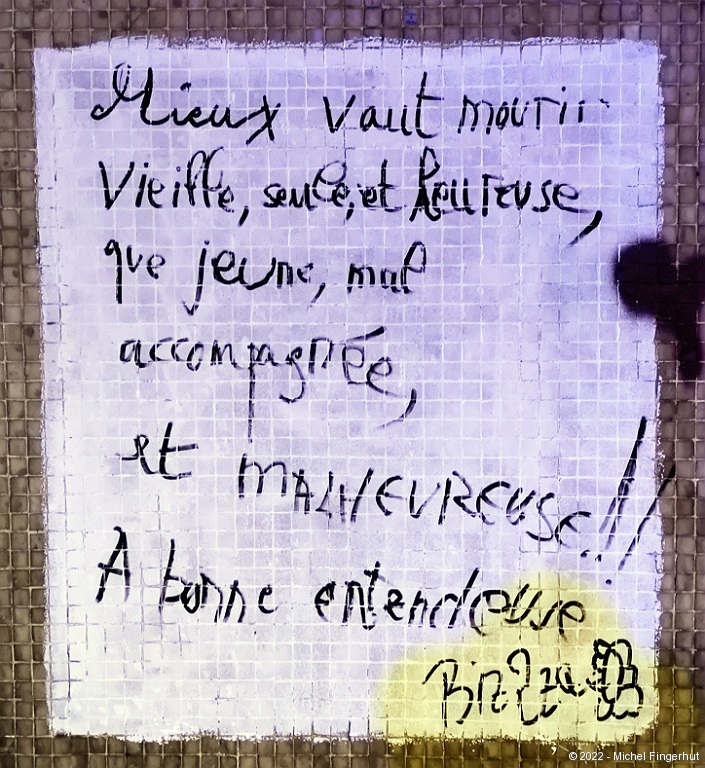 Mieux vaut mourir
Vieille, seule, et heureuse,
que jeune, mal
accompagnée,
et MALHEUREUSE!!
A bonne entendeuse
© 2022 - Michel Fingerhut